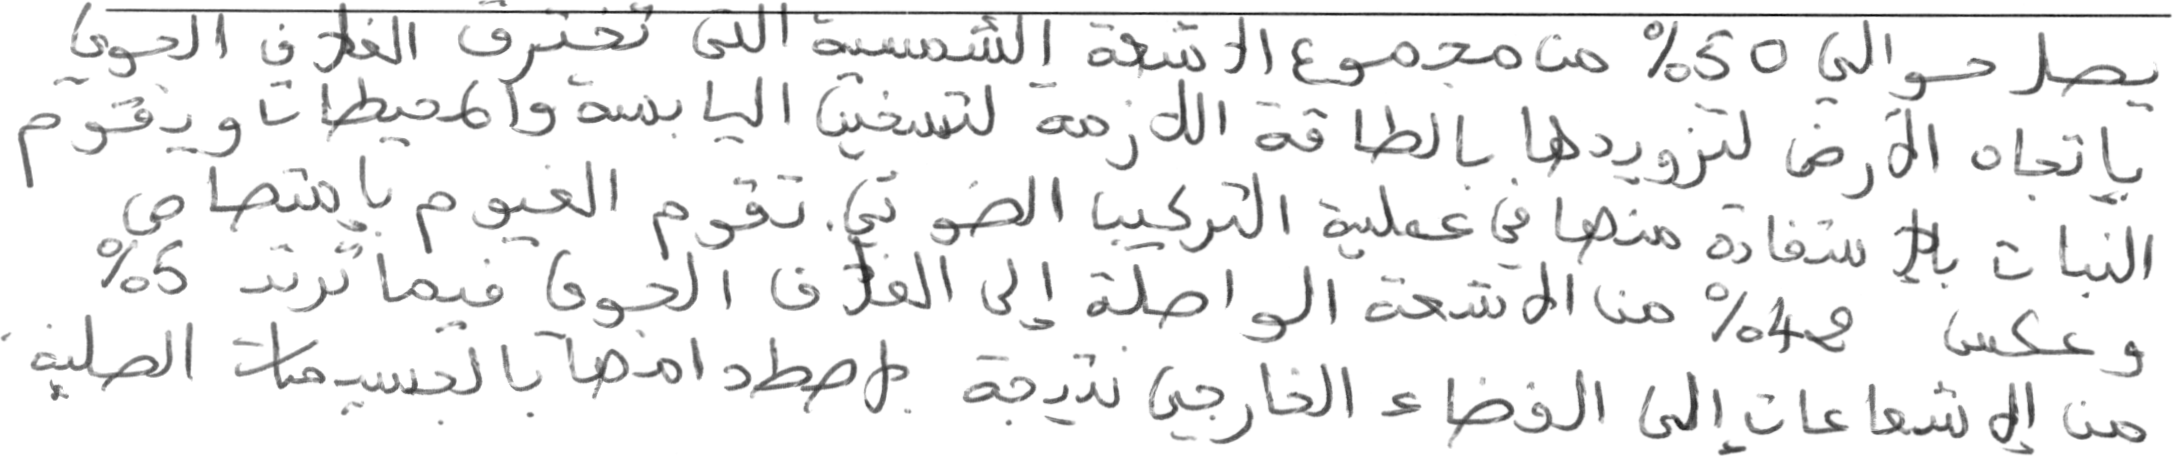 يصل حوالي 50% من مجموع الاشعة الشمسية التي تخترق الغلاف الجوي
بإتجاه الأرض لتزويدها بالطاقة اللازمة لتسخين اليابسة والمحيطات ويقوم
النبات بالإستفادة منها في عملية التركيب الضوئي. تقوم الغيوم بإمتصاص
وعكس 42% من الأشعة الواصلة إلى الغلاف الجوي فيما ترتد 5%
من الإشعاعات إلى الفضاء الخارجي نتيجة لإصطدامها بالجسيمات الصلبة